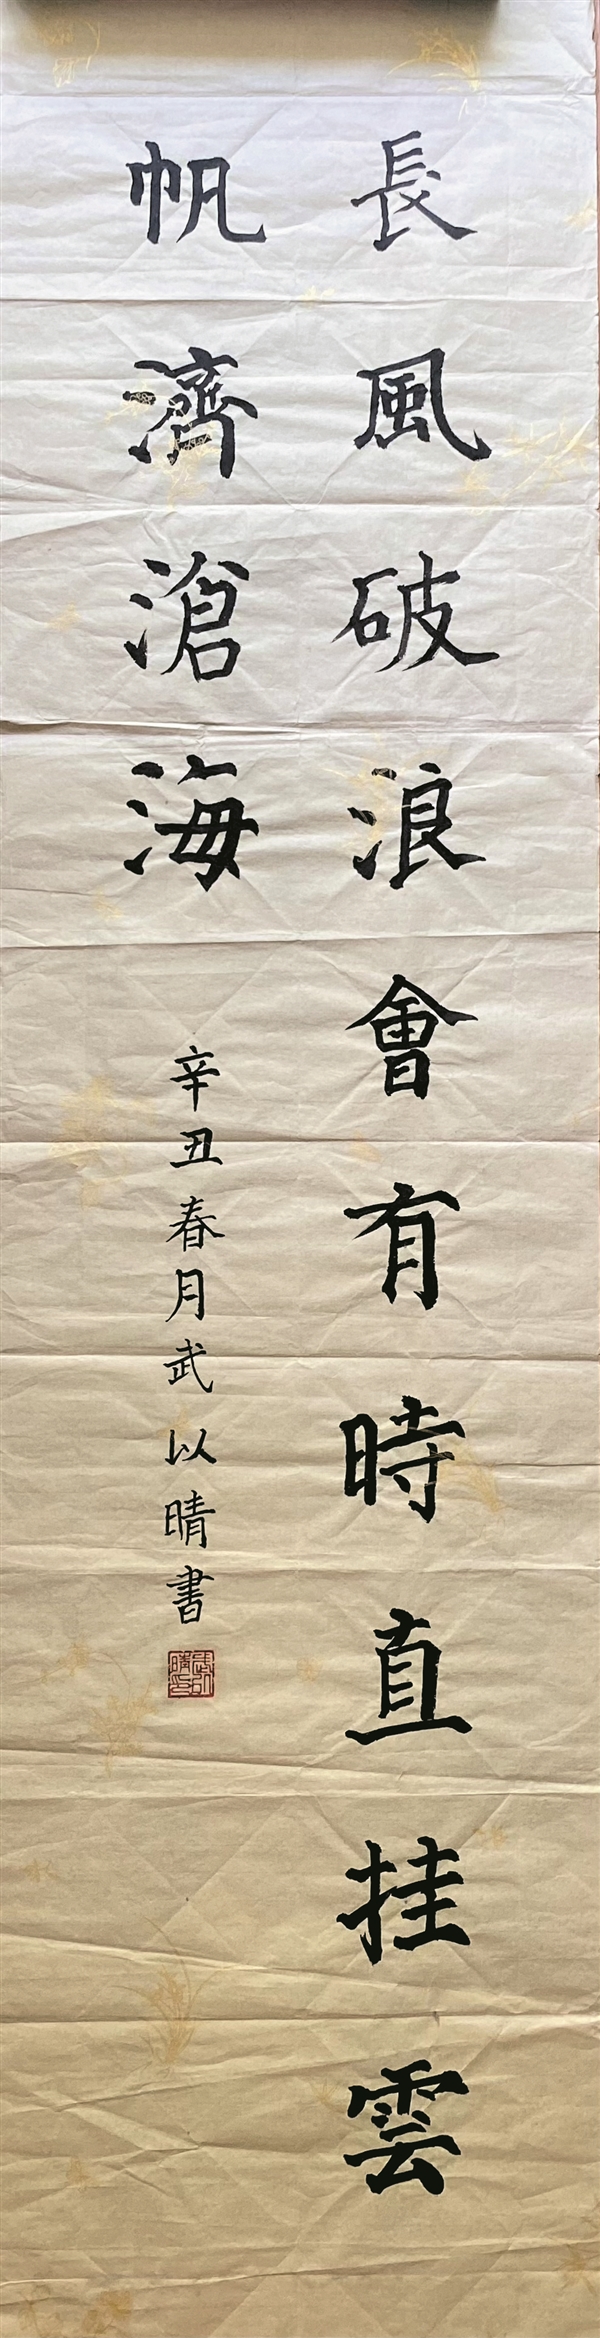 長風破浪會有時直挂雲
帆濟滄海
辛丑春月武以晴書